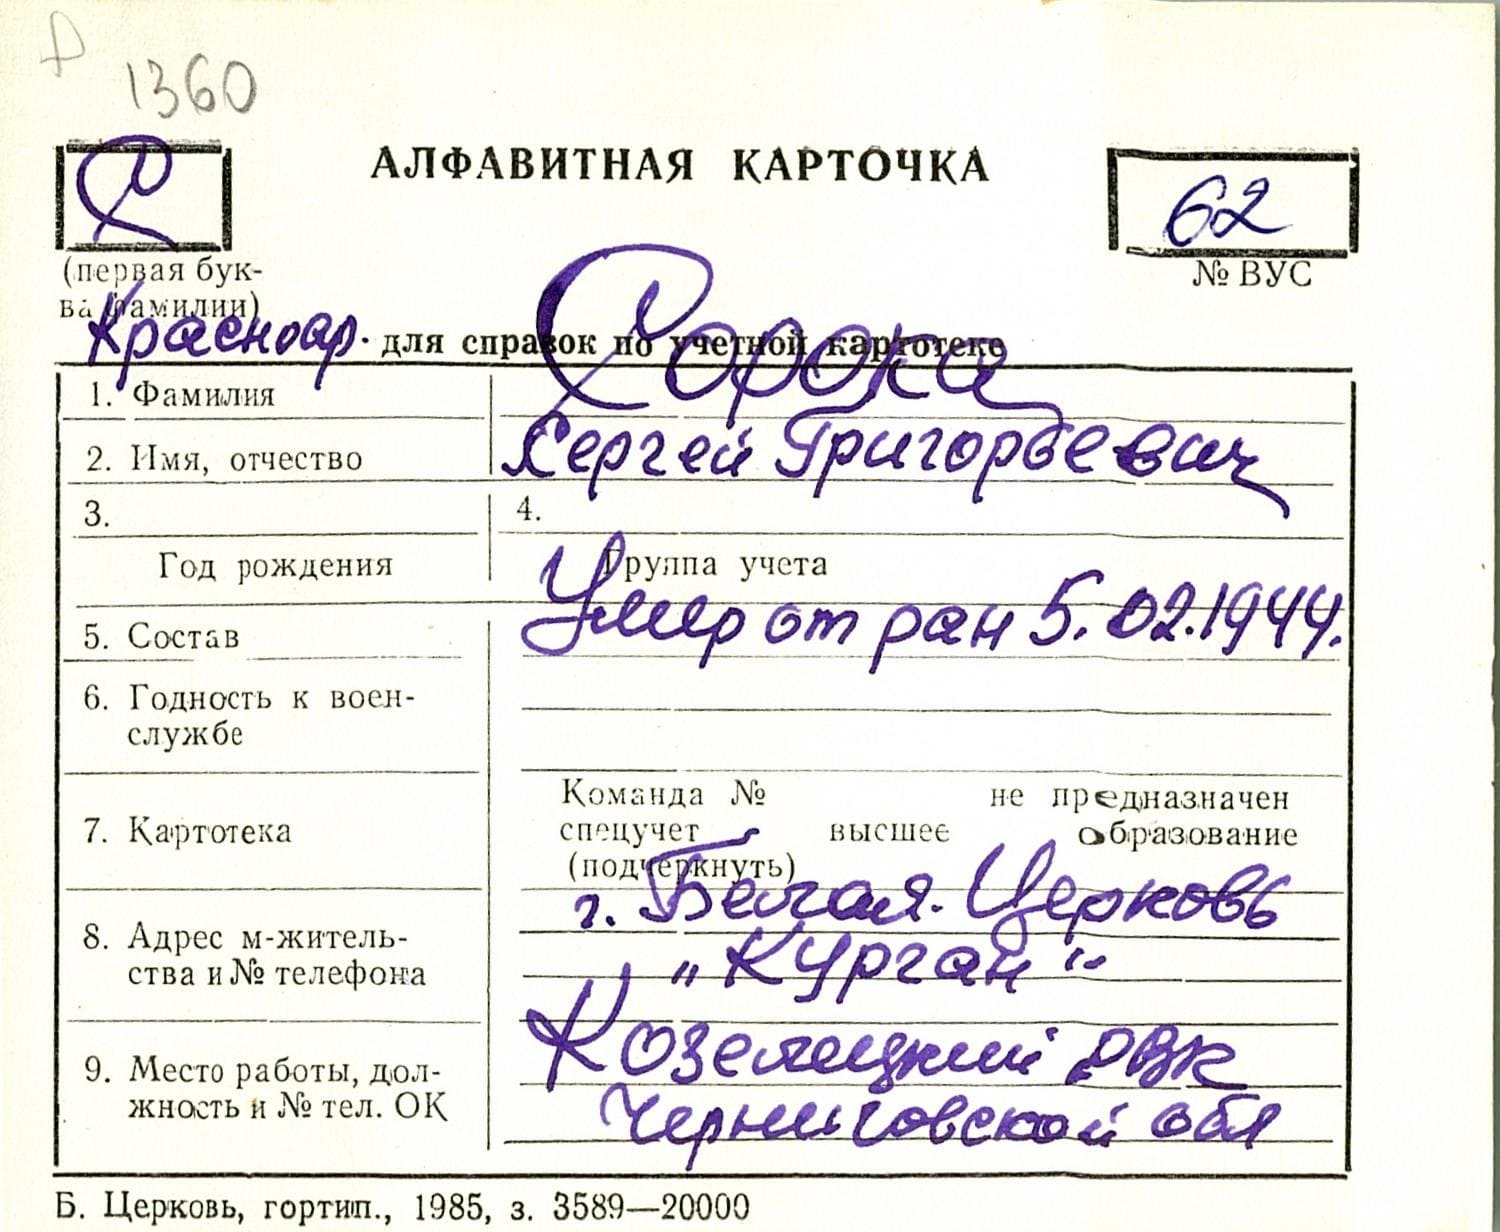 1360
С АЛФАВИТНАЯ КАРТОЧКА 62
(первая бук-
ва фамилии)
№ ВУС
Красноар. для справок по учетной картотеке
1. Фамилия Сорока
2. Имя, отчество Сергей Григорьевич
3. 4.
Год рождения Группа учета
5. Состав Умер от ран 5.02.1944.
6. Годность к воен-
службе
7. Картотека
Команда № не предназначен
спецучет высшее образование
(подчеркнуть)
8. Адрес м-житель-
ства и № телефона
г. Белая-Церковь
„Курган“
9. Место работы, дол-
жность и № тел. ОК
Козелецкий РВК
Черниговской обл
Б. Церковь, гортип., 1985, з. 3589—20000